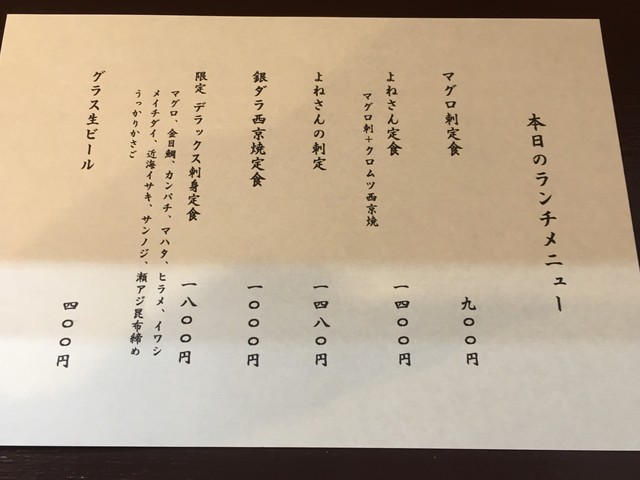 本日のランチメニュー
マグロ刺定食 九〇〇円
よねさん定食 一四〇〇円
マグロ刺+クロムツ西京焼
よねさんの刺定 一四八〇円
銀ダラ西京焼定食 一〇〇〇円
限定 デラックス刺身定食 一八〇〇円
マグロ、金目鯛、カンパチ、マハタ、ヒラメ、イワシ
メイチダイ、近海イサキ、サンノジ、瀬アジ昆布締め
うっかりかさご
グラス生ビール 四〇〇円